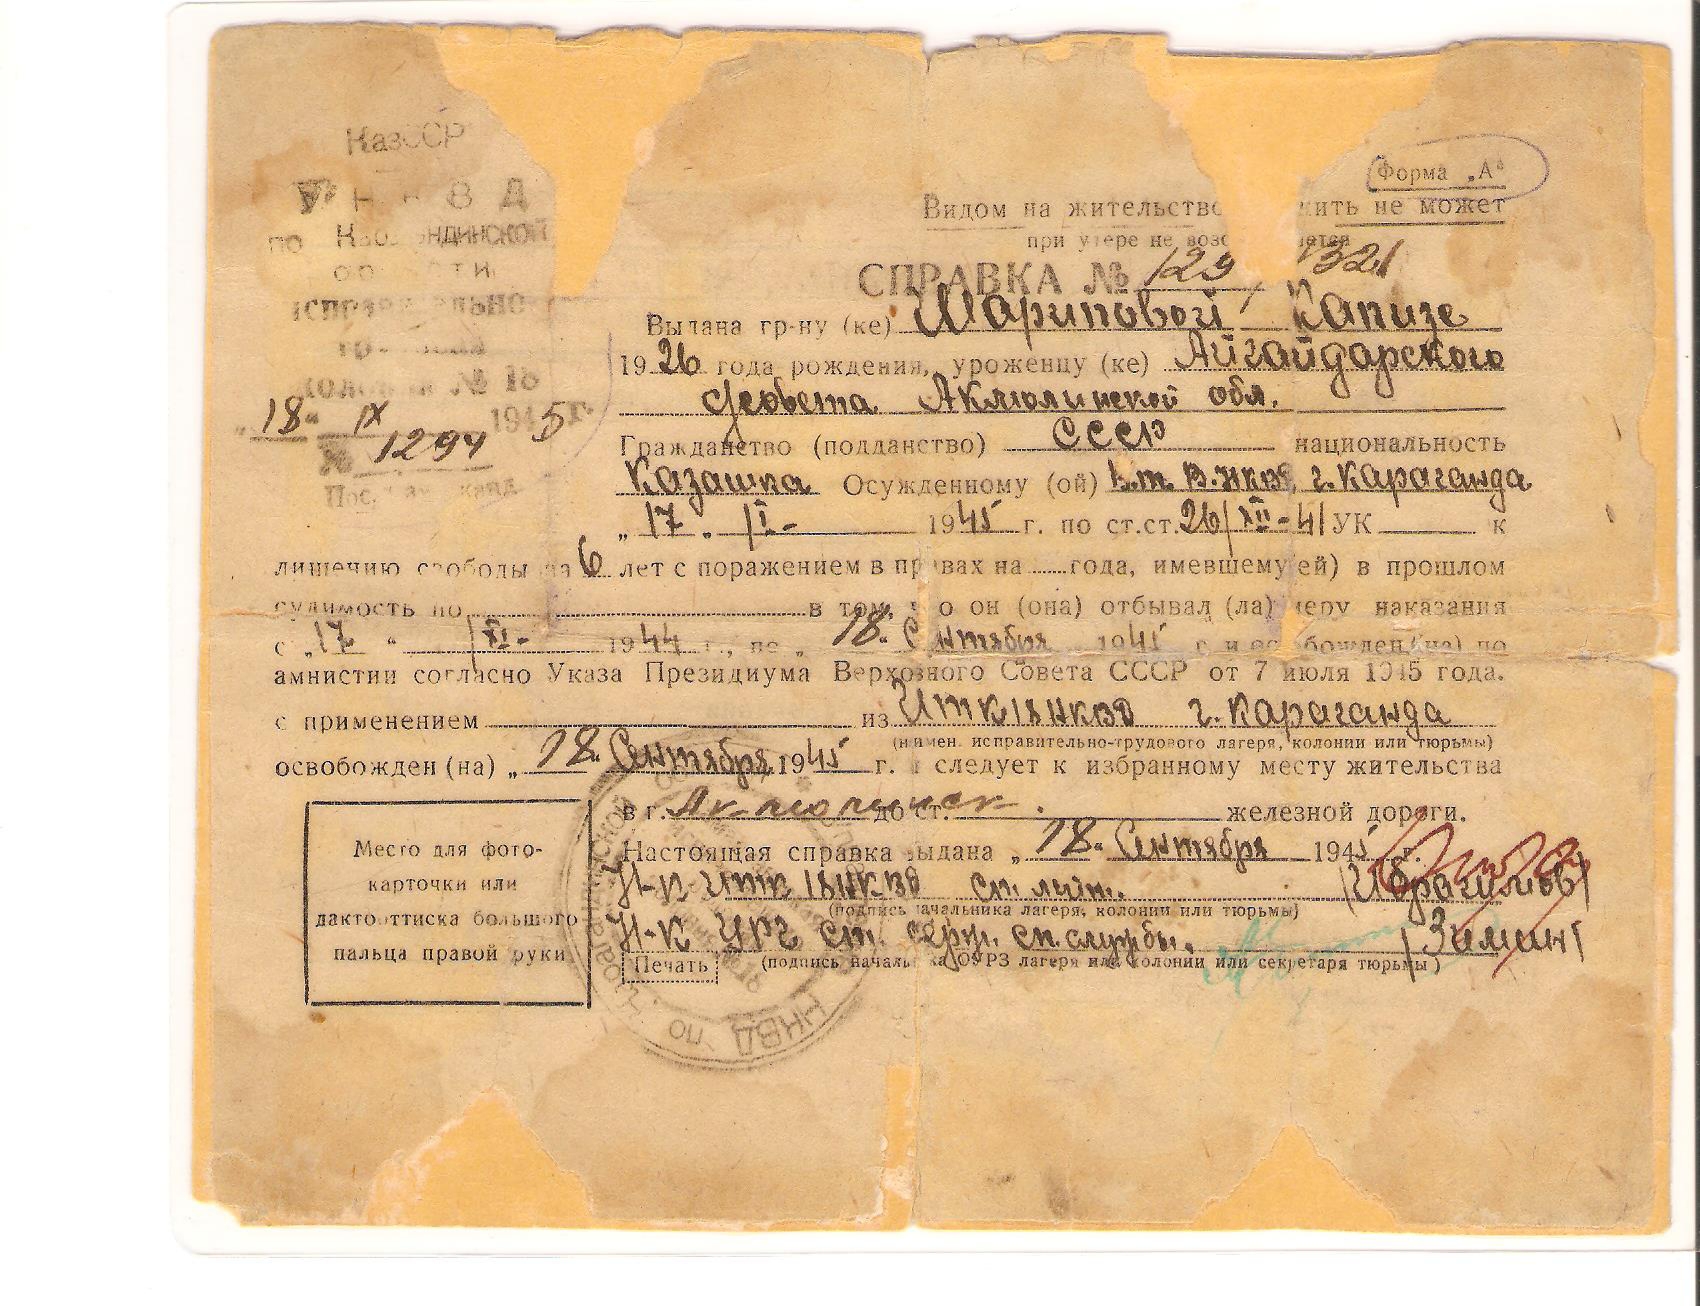 КазССР
УНКВД
по Карагандинской
области
Исправительно-
трудовая
колония № 18
„18“ IX 1945 г.
№ 1294
Форма „А“
Видом на жительство служить не может
при утере не возобновляется
СПРАВКА № 129 321
Выдана гр-ну (ке) Шариповой Капизе
1926 года рождения, уроженцу (ке) Айгайдарского
с/совета Акмолинской обл.
Гражданство (подданство) СССР национальность
Казашка Осужденному (ой) В.т. В.НКВД г. Караганда
„17“ I- 1945 г. по ст.ст. 26/XII-41 УК к
лишению свободы на 6 лет с поражением в правах на года, имевшему (ей) в прошлом
судимость по в том, что он (она) отбывал (ла) меру наказания
с „17“ XI- 1944 г., по „18“ Сентября 1945 г. и освобожден (на) по
амнистии согласно Указа Президиума Верховного Совета СССР от 7 июля 1945 года.
с применением из ИТК 18 НКВД г. Караганда
(наимен. исправительно-трудового лагеря, колонии или тюрьмы)
освобожден (на) „18“ Сентября 1945 г. и следует к избранному месту жительства
в г. Акмолинск до ст. железной дороги.
Настоящая справка выдана „18“ Сентября 1945 г.
Н-к ИТК 18 НКВД ст. лейт. /Ибрагимов/
(подпись начальника лагеря, колонии или тюрьмы)
Н-к УРЧ ст. серж. сп. службы. /Зимин/
(подпись начальника ОУРЗ лагеря или колонии или секретаря тюрьмы)
Печать
Место для фото-
карточки или
дактооттиска большого
пальца правой руки
НКВД по Карагандинской